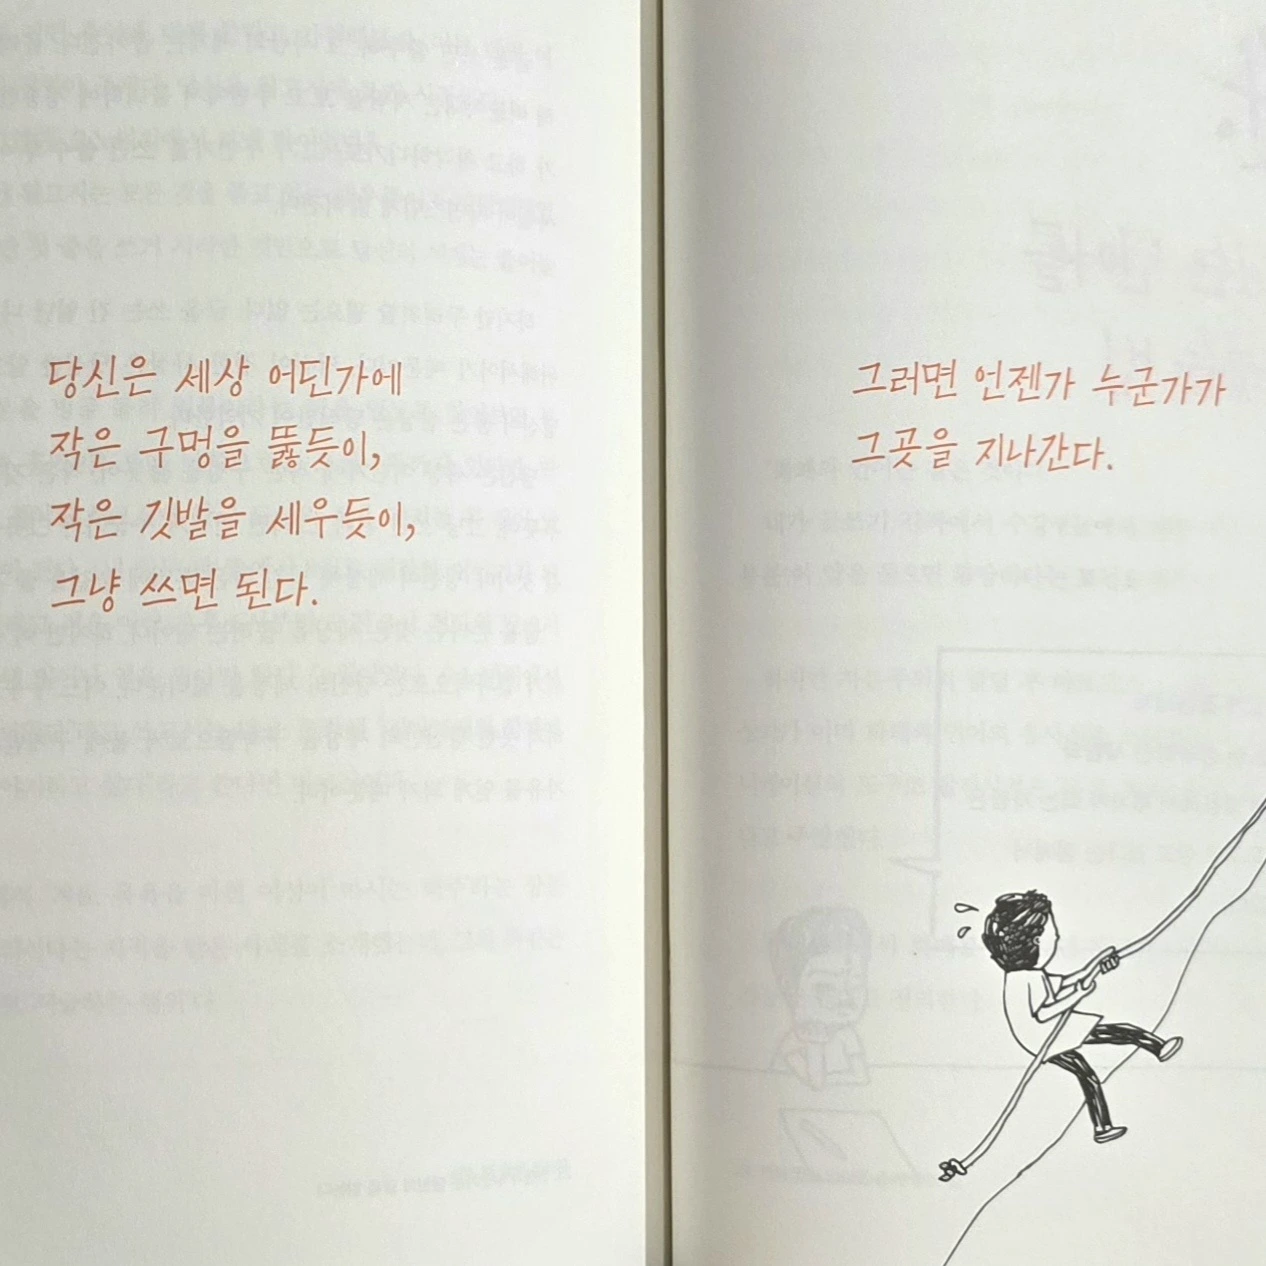 당신은 세상 어딘가에
작은 구멍을 뚫듯이,
작은 깃발을 세우듯이,
그냥 쓰면 된다.
그러면 언젠가 누군가가
그곳을 지나간다.